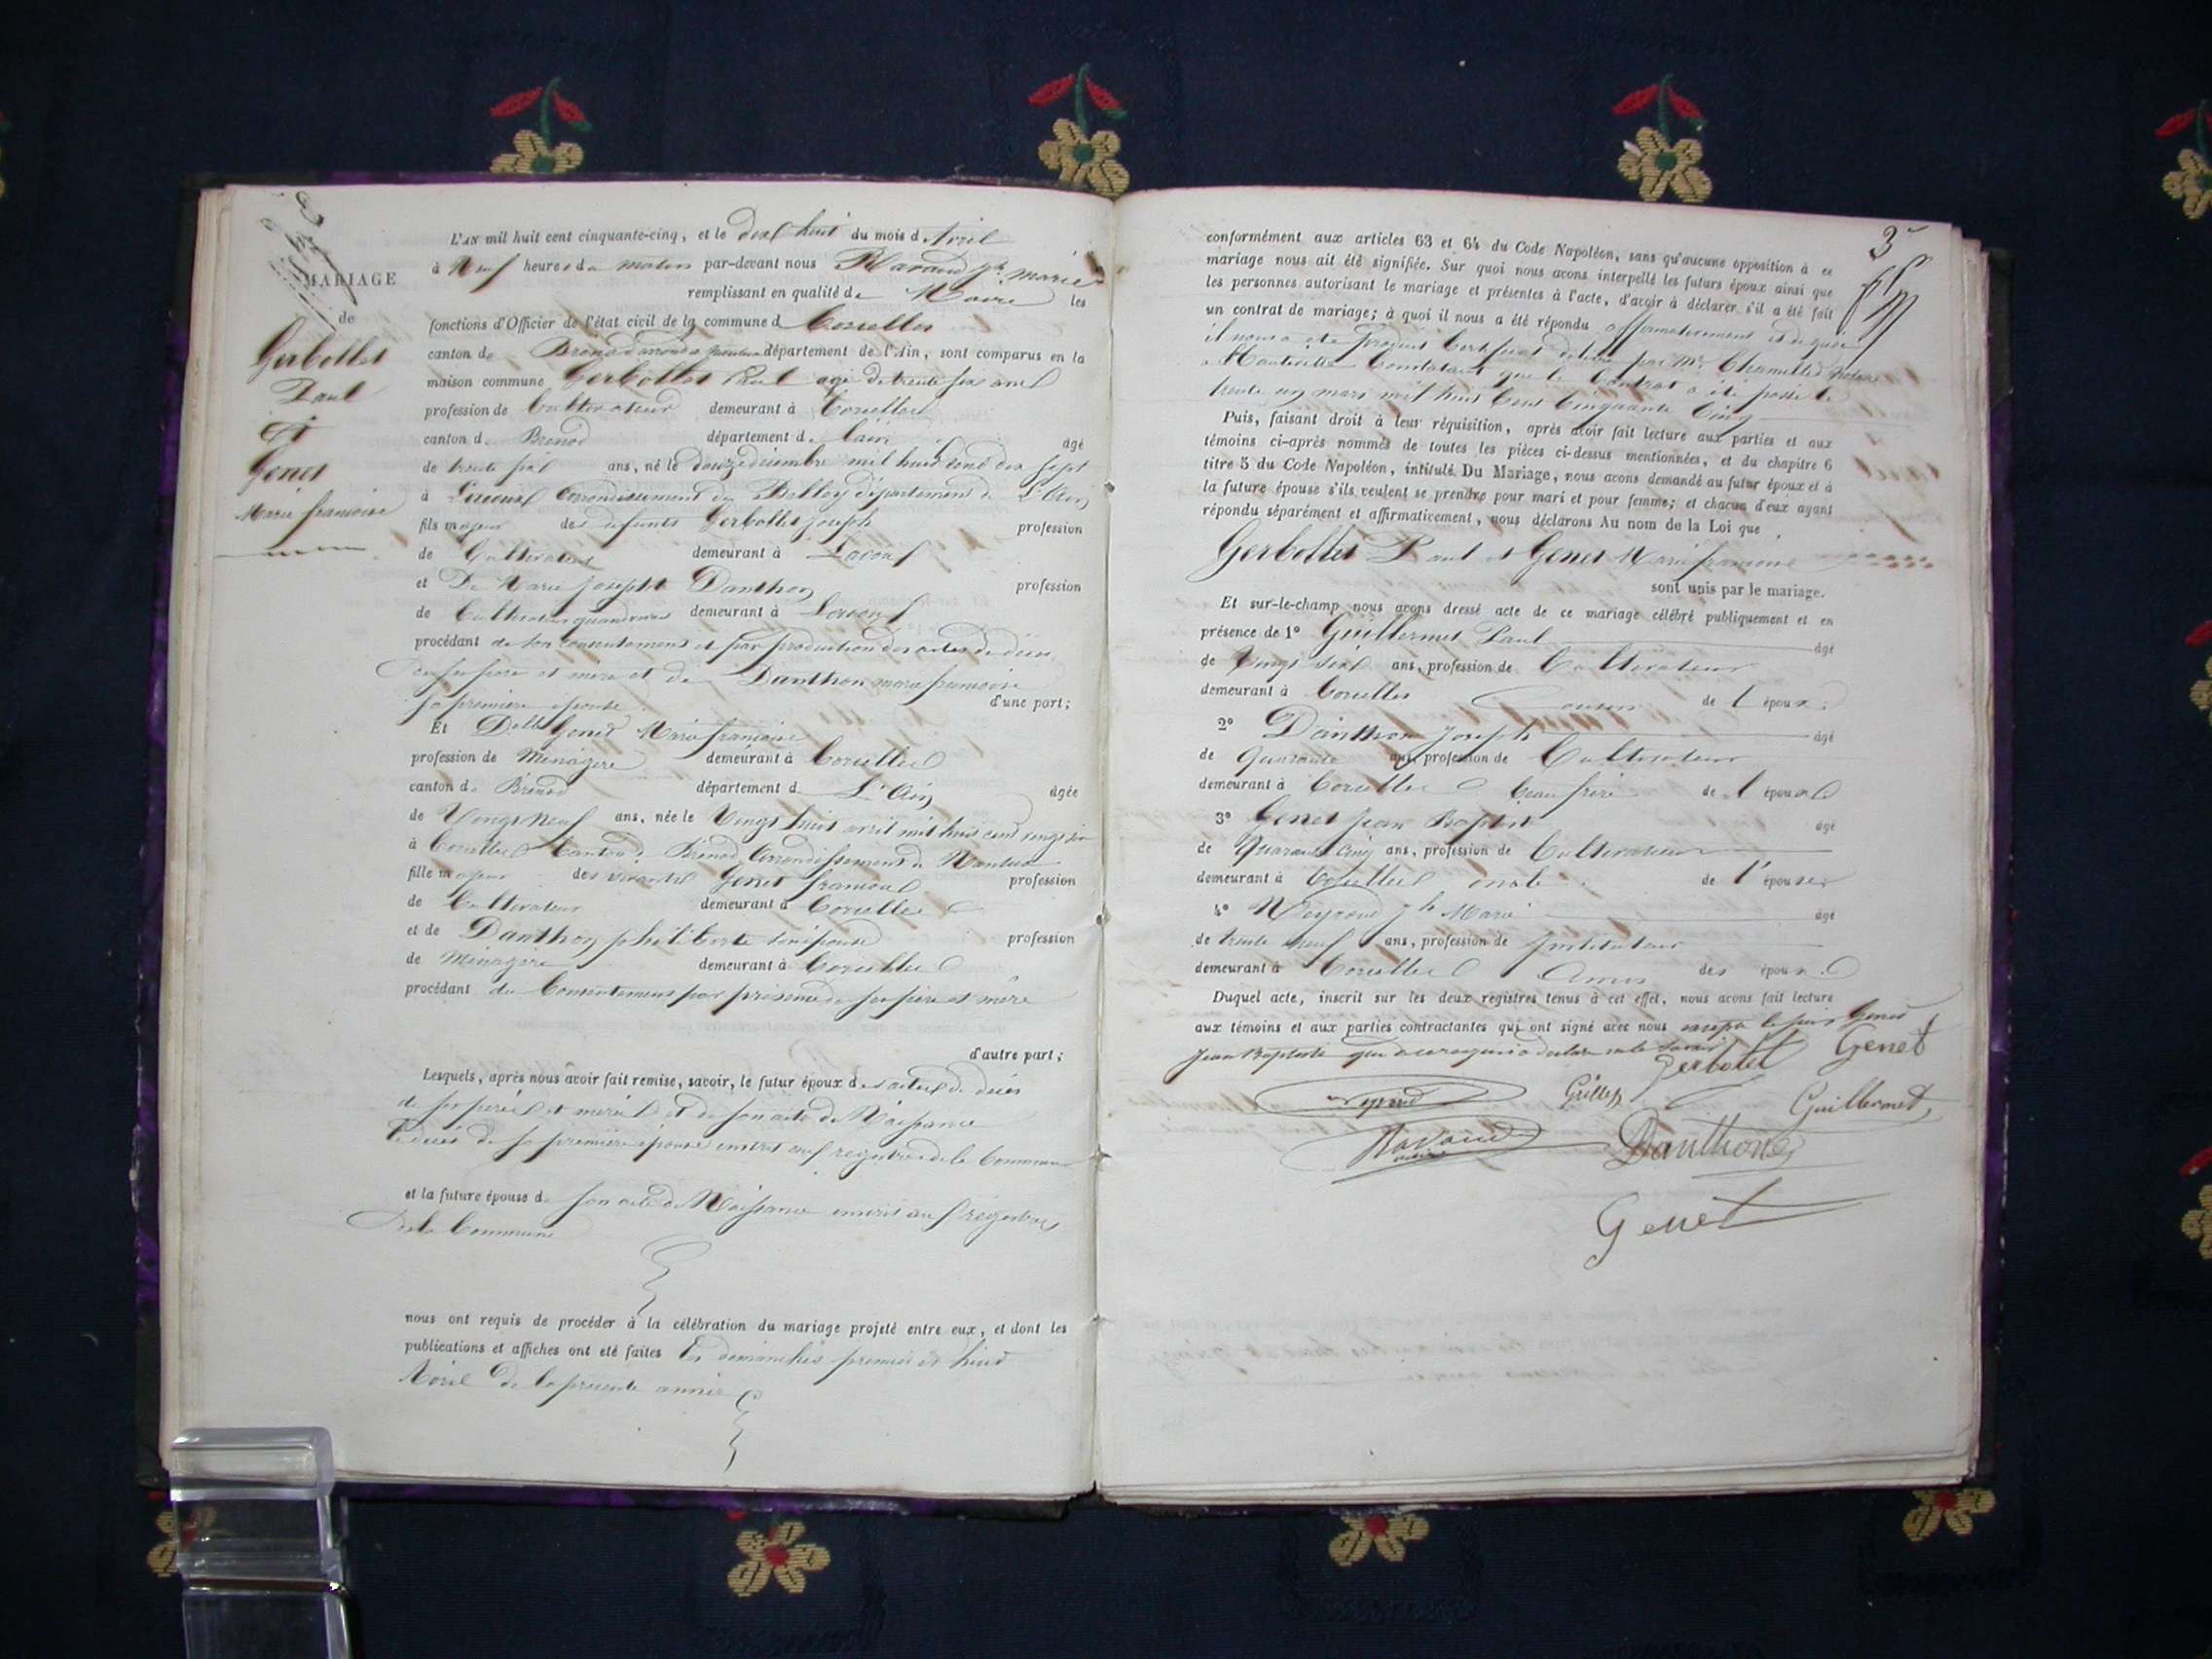 MARIAGE
de
Gerbollet
Paul
et
Genet
Marie francoise
L'AN mil huit cent cinquante-cinq, et le dix huit du mois d Avril
à Neuf heures du matin par-devant nous Ravaud Jh. marie
remplissant en qualité de Maire les
fonctions d'Officier de l'état civil de la commune d Corcelles
canton de Brenod département de l'Ain, sont comparus en la
maison commune Gerbollet Paul agé de trente six ans
profession de Cultivateur demeurant à Corcelles
canton de Brenod département de l'ain âgé
de trente six ans, né le douze décembre mil huit cent dix sept
à arrondissement de Belley département de L'Ain
fils majeur des defunts Gerbollet joseph profession
de Cultivateur demeurant à
et De Marie Josephte Danthon profession
de Cultivateur demeurant à
procédant de son consentement et par production des actes de décès
de ses pere et mere et de Danthon marie francoise
sa première épouse d'une part;
Et Delle Genet Marie francoise
profession de Ménagere demeurant à Corcelles
canton de Brénod département d L'Ain âgée
de Vingt Neuf ans, née le Vingt huit avril mil huit cent vingt six
à Corcelles Canton de Brenod arrondissement de Nantua
fille majeur des Genet francois profession
de Cultivateur demeurant à Corcelles
et de Danthon philiberte son épouse profession
de Ménagere demeurant à Corcelles
procédant du Consentement par présence de ses père et mère
d'autre part;
Lesquels, après nous avoir fait remise, savoir, le futur époux des actes de décès
de ses pere et mere et de son acte de Naissance
décès de sa première épouse inscrit aux registres de la Commune
et la future épouse de son acte de Naissance inscrit aux registres
de la Commune
nous ont requis de procéder à la célébration du mariage projeté entre eux, et dont les
publications et affiches ont été faites les dimanches premier et huit
Avril de la presente année
3
conformément aux articles 63 et 64 du Code Napoléon, sans qu'aucune opposition à ce
mariage nous ait été signifiée. Sur quoi nous avons interpellé les futurs époux ainsi que
les personnes autorisant le mariage et présentes à l'acte, d'avoir à déclarer s'il a été fait
un contrat de mariage; à quoi il nous a été répondu affirmativement et de quoi
il nous a été produit Certificat delivré par Mr. notaire
à Hauteville Constatant que le Contrat a été passé le
trente un mars mil huit Cent Cinquante Cinq
Puis, faisant droit à leur réquisition, après avoir fait lecture aux parties et aux
témoins ci-après nommés de toutes les pièces ci-dessus mentionnées, et du chapitre 6
titre 5 du Code Napoléon, intitulé Du Mariage, nous avons demandé au futur époux et à
la future épouse s'ils veulent se prendre pour mari et pour femme; et chacun d'eux ayant
répondu séparément et affirmativement, nous déclarons Au nom de la Loi que
Gerbollet Paul et Genet Marie francoise
sont unis par le mariage.
Et sur-le-champ nous avons dressé acte de ce mariage célébré publiquement et en
présence de 1° Guillermet Paul âgé
de Vingt six ans, profession de Cultivateur
demeurant à Corcelles Cousin de l époux
2° Danthon Joseph âgé
de Quarante ans, profession de Cultivateur
demeurant à Corcelles beau frère de l époux
3° Genet Jean Baptiste âgé
de Quarante Cinq ans, profession de Cultivateur
demeurant à Corcelles oncle de l'épouse
4° Neyroud Jh Marie âgé
de trente neuf ans, profession de Instituteur
demeurant à Corcelles Amis des époux
Duquel acte, inscrit sur les deux registres tenus à cet effet, nous avons fait lecture
aux témoins et aux parties contractantes qui ont signé avec nous excepté Genet
Jean Baptiste que de ce requis a déclaré ne le savoir
Gerbolet
Genet
Guillermet
Ravaud
maire
Danthon
Genet